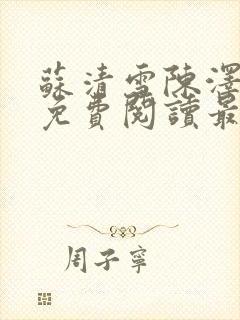 蘇清雪陳澤
免費閱讀最
周子寧